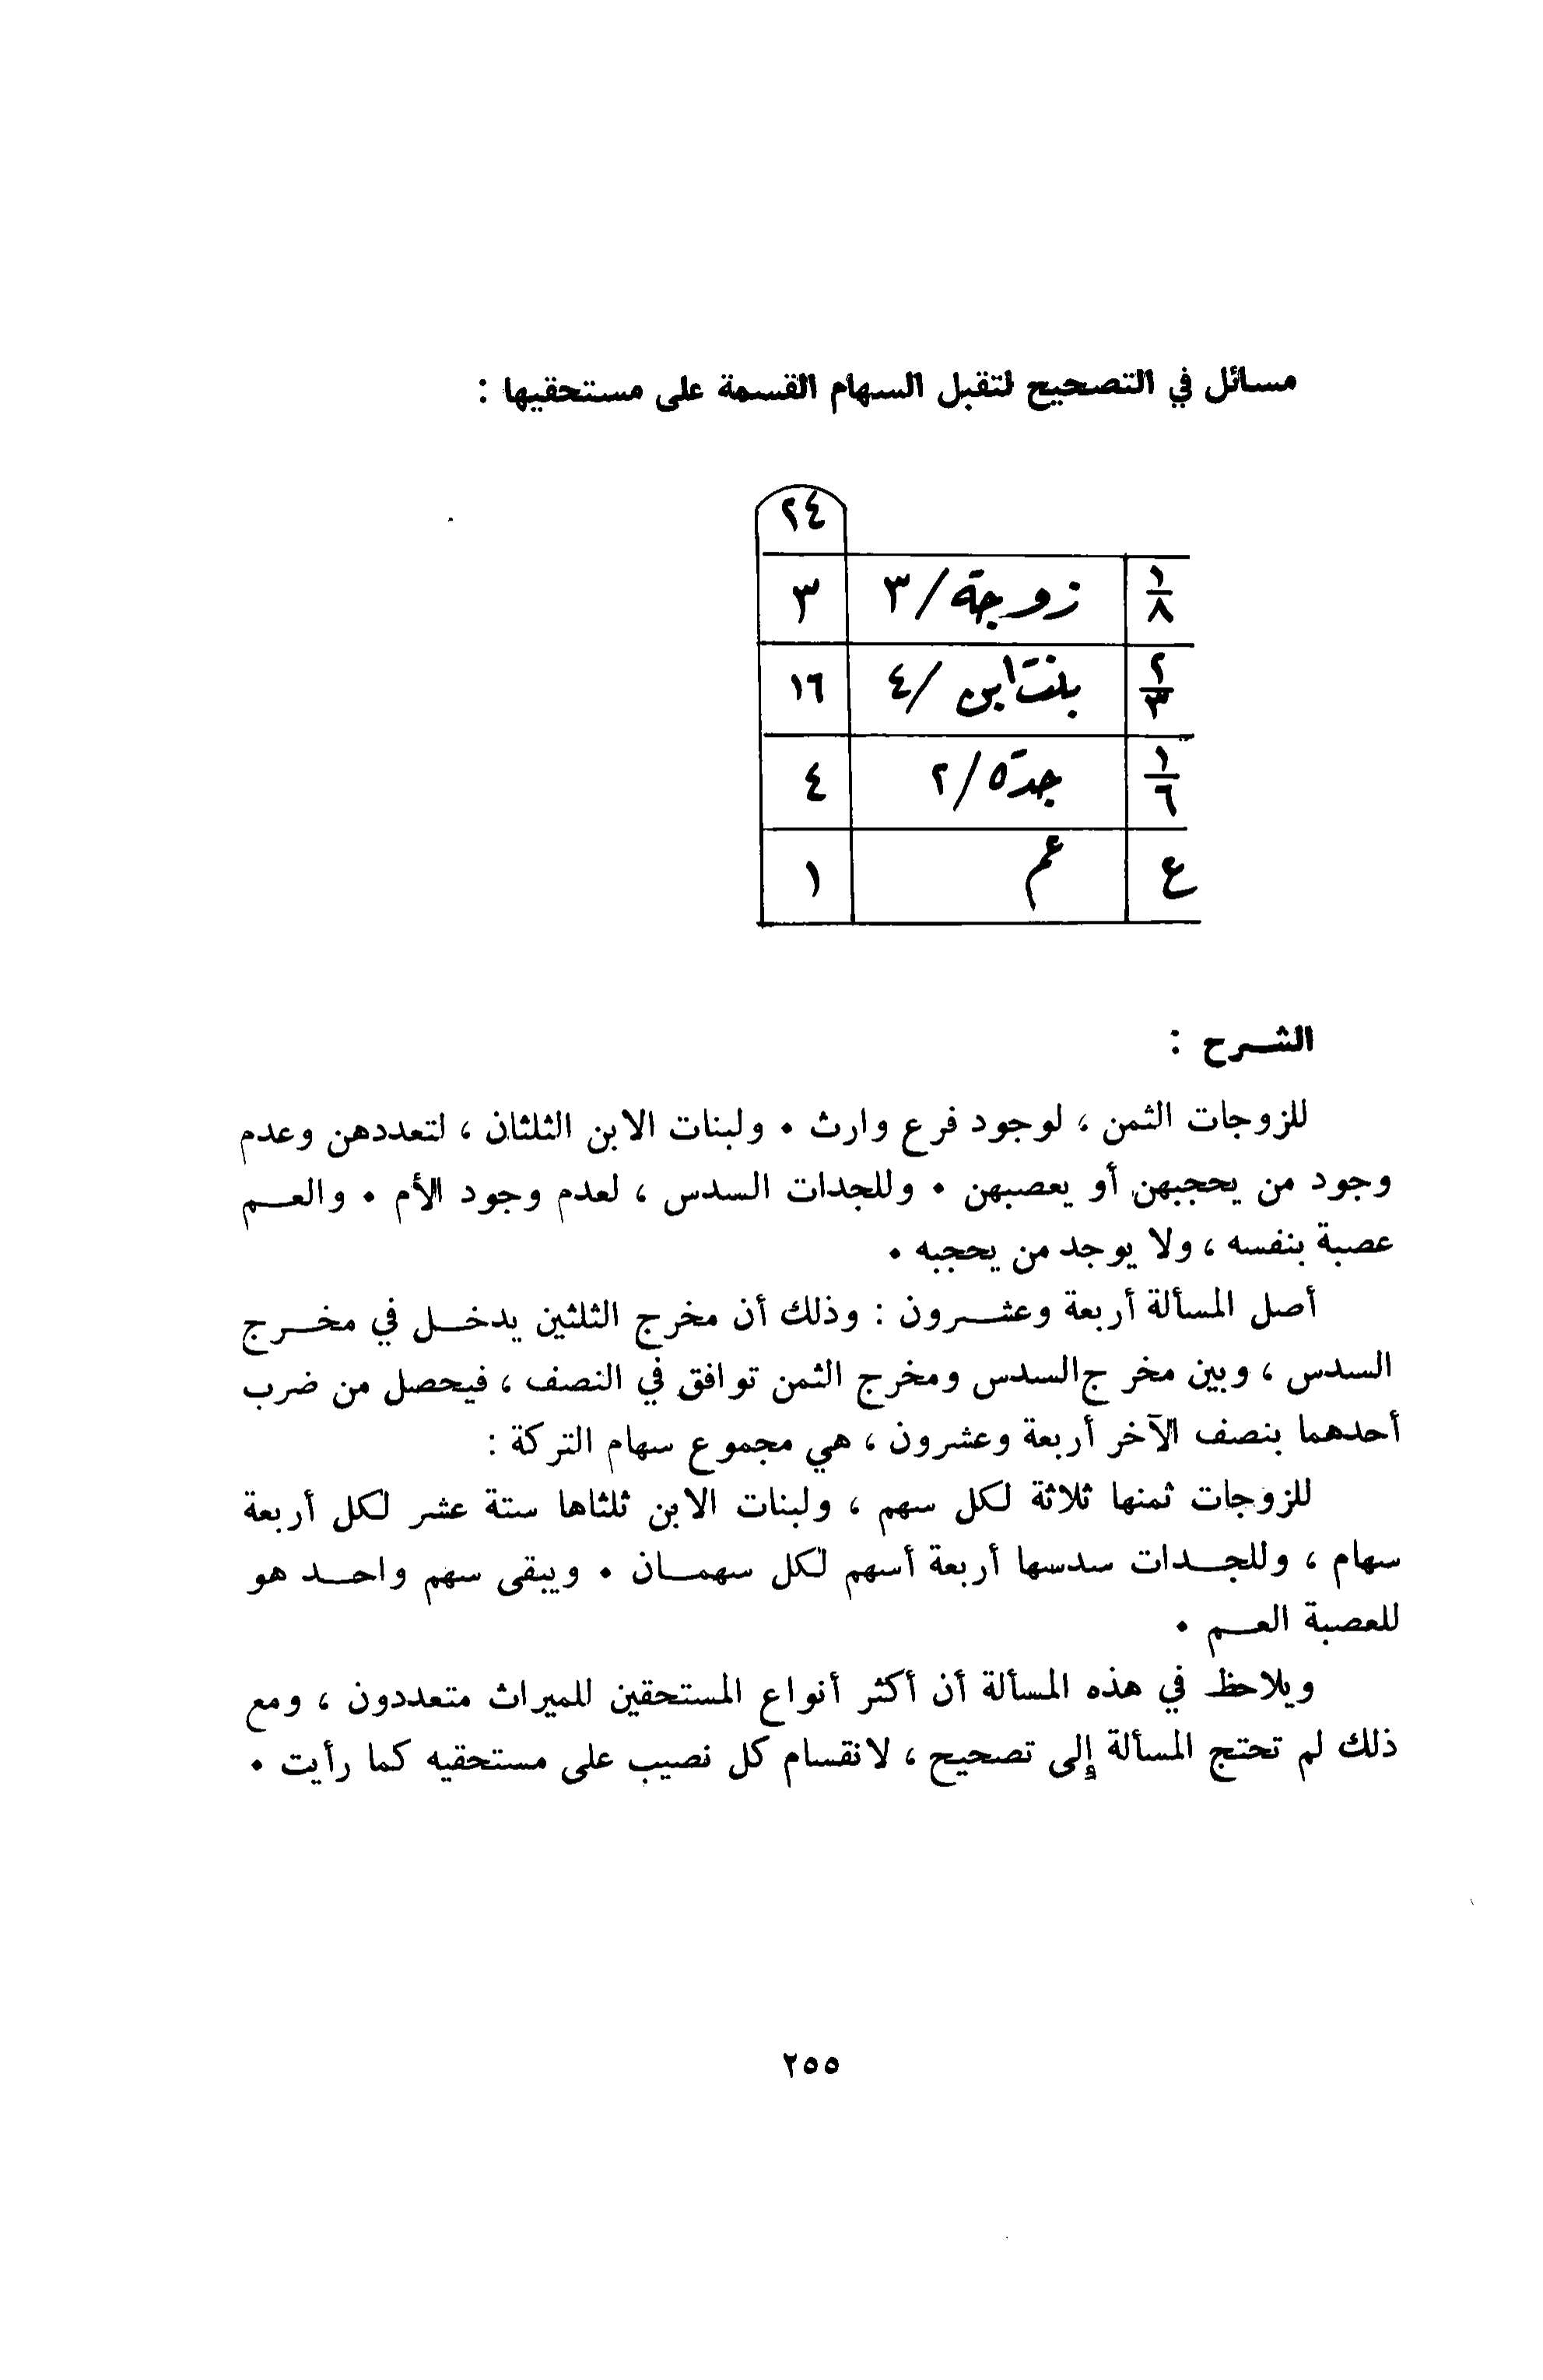 مسائل في التصحيح لتقبل السهام القسمة على مستحقيها :
٢٤
١/٨ زوجة / ٣ ٣
٢/٣ بنت ابن / ٤ ١٦
١/٦ جدة / ٢ ٤
ع عم ١
الشرح :
للزوجات الثمن ، لوجود فرع وارث . ولبنات الابن الثلثان ، لتعددهن وعدم
وجود من يحجبهن أو يعصبهن . وللجدات السدس ، لعدم وجود الأم . والعم
عصبة بنفسه ، ولا يوجد من يحجبه .
أصل المسألة أربعة وعشرون : وذلك أن مخرج الثلثين يدخل في مخرج
السدس ، وبين مخرج السدس ومخرج الثمن توافق في النصف ، فيحصل من ضرب
أحدهما بنصف الآخر أربعة وعشرون ، هي مجموع سهام التركة :
للزوجات ثمنها ثلاثة لكل سهم ، ولبنات الابن ثلثاها ستة عشر لكل أربعة
سهام ، وللجدات سدسها أربعة أسهم لكل سهمان . ويبقى سهم واحد هو
للعصبة العم .
ويلاحظ في هذه المسألة أن أكثر أنواع المستحقين للميراث متعددون ، ومع
ذلك لم تحتج المسألة إلى تصحيح ، لانقسام كل نصيب على مستحقيه كما رأيت .
٢٥٥